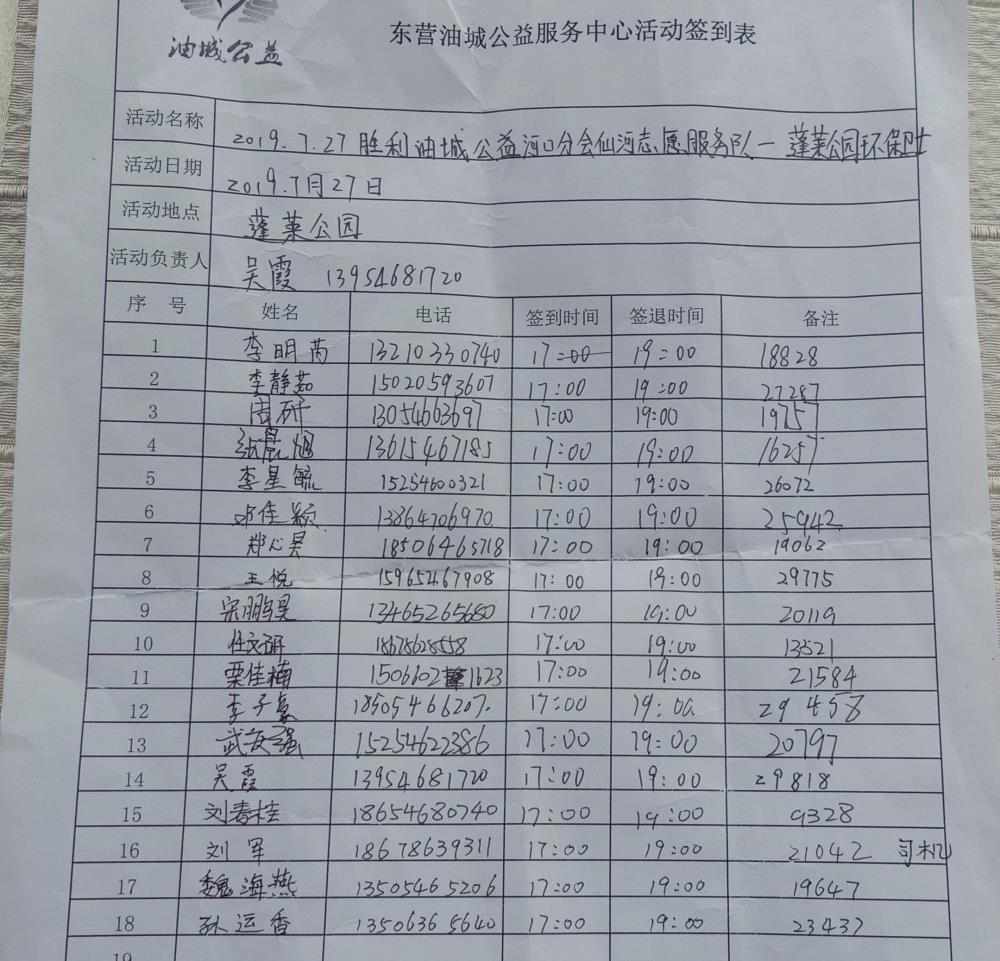 油城公益
东营油城公益服务中心活动签到表
活动名称 2019.7.27胜利油城公益河口分会仙河志愿服务队一蓬莱公园环保卫士
活动日期 2019.7月27日
活动地点 蓬莱公园
活动负责人 吴霞 13954681720
序号 姓名 电话 签到时间 签退时间 备注
1 李明芮 13210330740 17:00 19:00 18828
2 李静茹 15020593607 17:00 19:00 27287
3 周研 13054663697 17:00 19:00 19757
4 张晨旭 13615467185 17:00 19:00 16257
5 李星毓 15254600321 17:00 19:00 26072
6 邓佳颖 13864706970 17:00 19:00 25942
7 郑心昊 18506465718 17:00 19:00 19062
8 王悦 15965467908 17:00 19:00 29775
9 宋鹏昊 13465265680 17:00 19:00 20119
10 任文研 18678628558 17:00 19:00 13521
11 栗佳楠 15066021623 17:00 19:00 21584
12 李子豪 18505466207. 17:00 19:00. 29458
13 武安强 15254622386 17:00 19:00 20797
14 吴霞 13954681720 17:00 19:00 29818
15 刘春桂 18654680740 17:00 19:00 9328
16 刘军 18678639311 17:00 19:00 21042 司机
17 魏海燕 13505465206 17:00 19:00 19647
18 孙运香 13506365640 17:00 19:00 23437
19